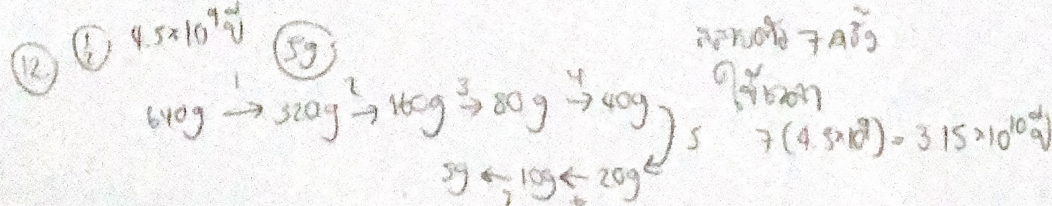 12 ½ 4.5×10⁹ ปี 5g
640g →1 320g →2 160g →3 80g →4 40g
5 20g ←6 10g ←7 5g
สลายตัว 7 ครั้ง
ใช้เวลา
7(4.5×10⁹) = 3.15×10¹⁰ ปี